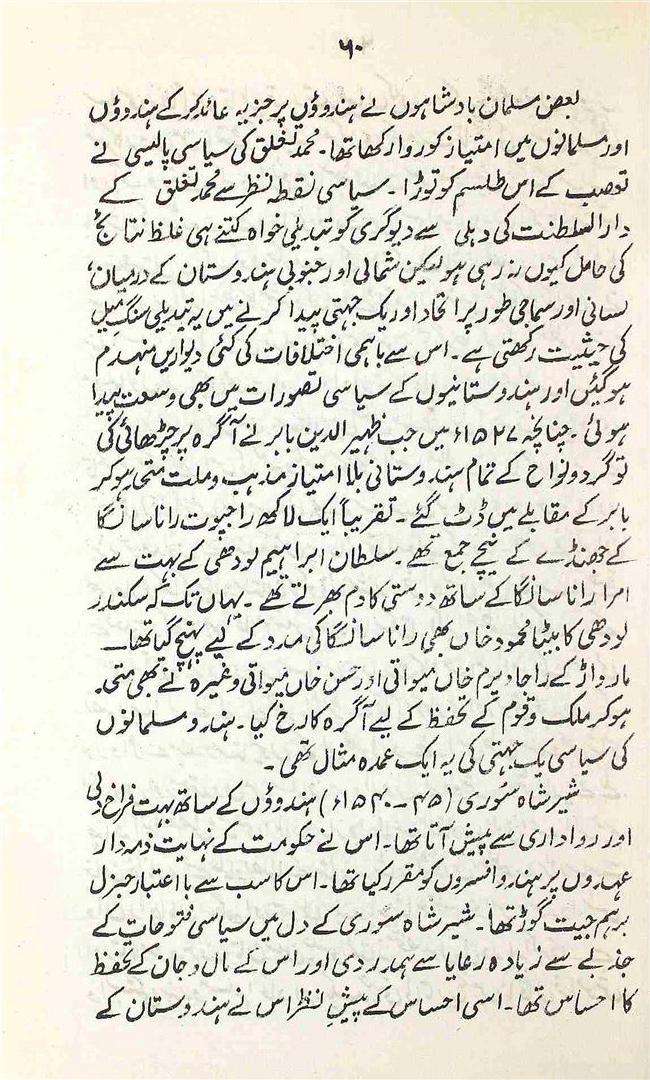 ۶۰
بعض مسلمان بادشاہوں نے ہندوؤں پر جزیہ عائد کر کے ہندوؤں
اور مسلمانوں میں امتیاز کو روا رکھا تھا۔ محمد تغلق کی سیاسی پالیسی نے
تعصب کے اس طلسم کو توڑا۔ سیاسی نقطہ نظر سے محمد تغلق کے
دارالسلطنت کی دہلی سے دیوگری کو تبدیلی خواہ کتنے ہی غلط نتائج
کی حامل کیوں نہ رہی ہو لیکن شمالی اور جنوبی ہندوستان کے درمیان،
لسانی اور سماجی طور پر اتحاد اور یک جہتی پیدا کرنے میں یہ تبدیلی سنگ میل
کی حیثیت رکھتی ہے۔ اس سے باہمی اختلافات کی کئی دیواریں منہدم
ہو گئیں اور ہندوستانیوں کے سیاسی تصورات میں بھی وسعت پیدا
ہوئی۔ چنانچہ ۱۵۲۷ء میں جب ظہیر الدین بابر نے آگرہ پر چڑھائی کی
تو گرد و نواح کے تمام ہندوستانی بلا امتیاز مذہب و ملت متحد ہو کر
بابر کے مقابلے میں ڈٹ گئے۔ تقریباً ایک لاکھ راجپوت رانا سانگا
کے جھنڈے کے نیچے جمع تھے۔ سلطان ابراہیم لودھی کے بہت سے
امرا رانا سانگا کے ساتھ دوستی کا دم بھرتے تھے۔ یہاں تک کہ سکندر
لودھی کا بیٹا محمود خاں بھی رانا سانگا کی مدد کے لیے پہنچ گیا تھا۔
مارواڑ کے راجا دیرم خاں میواتی اور حسن خاں میواتی وغیرہ نے بھی متحد
ہو کر ملک و قوم کے تحفظ کے لیے آگرہ کا رخ کیا۔ ہندو مسلمانوں
کی سیاسی یک جہتی کی یہ ایک عمدہ مثال تھی۔
شیر شاہ سوری (۴۵ - ۱۵۴۰ء) ہندوؤں کے ساتھ بہت فراخ دلی
اور رواداری سے پیش آتا تھا۔ اس نے حکومت کے نہایت ذمہ دار
عہدوں پر ہندو افسروں کو مقرر کیا تھا۔ اس کا سب سے با اعتبار جنرل
برہم جیت گوڑ تھا۔ شیر شاہ سوری کے دل میں سیاسی فتوحات کے
جذبے سے زیادہ رعایا سے ہمدردی اور اس کے مال و جان کے تحفظ
کا احساس تھا۔ اسی احساس کے پیش نظر اس نے ہندوستان کے